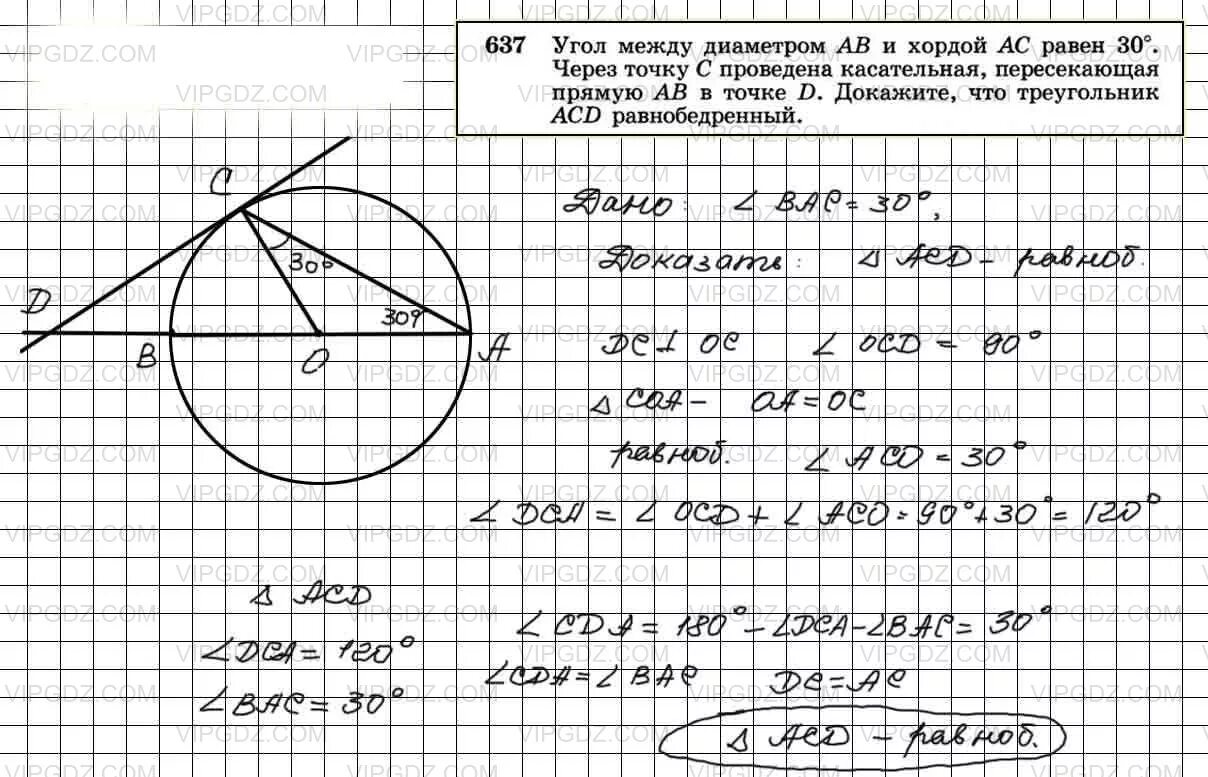 637 Угол между диаметром AB и хордой AC равен 30°.
Через точку C проведена касательная, пересекающая
прямую AB в точке D. Докажите, что треугольник
ACD равнобедренный.
C
30°
D
30°
B
O
A
Дано: ∠ BAC = 30°,
Доказать: △ ACD – равноб.
DC ⊥ OC ∠ OCD = 90°
△ COA – OA = OC
равноб. ∠ ACO = 30°
∠ DCA = ∠ OCD + ∠ ACO = 90° + 30° = 120°
△ ACD
∠ DCA = 120°
∠ BAC = 30°
∠ CDA = 180° – ∠DCA – ∠BAC = 30°
∠CDA = ∠ BAC DC = AC
△ ACD – равноб.
VIPGDZ.COM